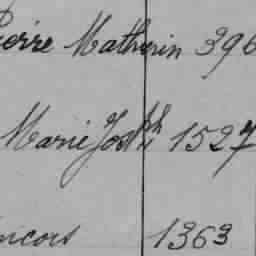 Pierre Mathurin 396
Marie Josph 1527
ncois 1363